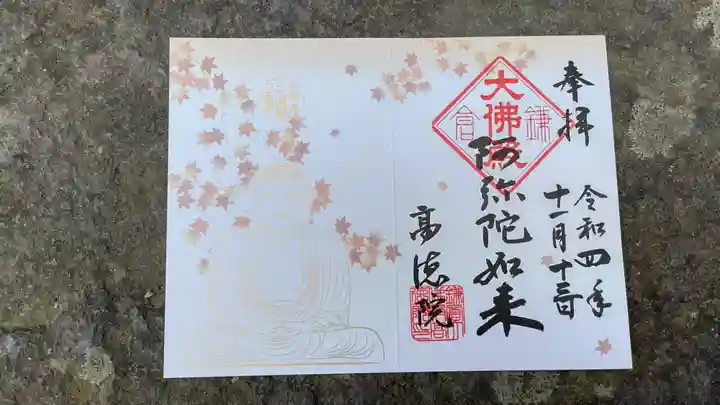 奉拝
令和四年
十一月十三日
大佛殿
鎌倉
阿弥陀如来
高徳院